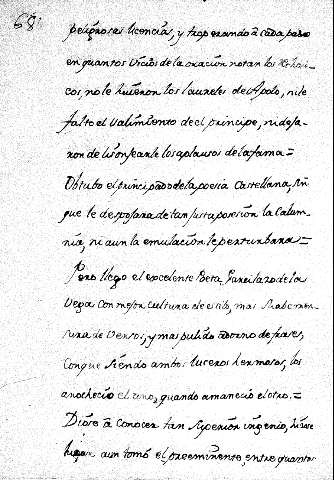 68.
peligrosas licencias, y tropezando â cada paso
en quantos vicios de la oración notan los Rethori-
cos, no le huieron los laureles de Apolo, ni le
falto el valimiento de el principe, ni deja-
ron de lisonjearle los aplausos de la fama =
Obtubo el principado de la poesia Castellana, sin
que le despojara de tan justa posesión la calum-
nia, ni aun la emulación le perturbara =
Pero llego el excelente Poeta Garcilazo de la
Vega con mejor cultura de estilo, mas suabe men-
sura de versos, y mas pulido adorno de frases,
conque siendo ambos luceros hermosos, los
anochecio el uno, quando amanecio el otro. =
Diose â conocer tan superior ingenio, hizose
lugar aun tomó el preeminente, entre quantos